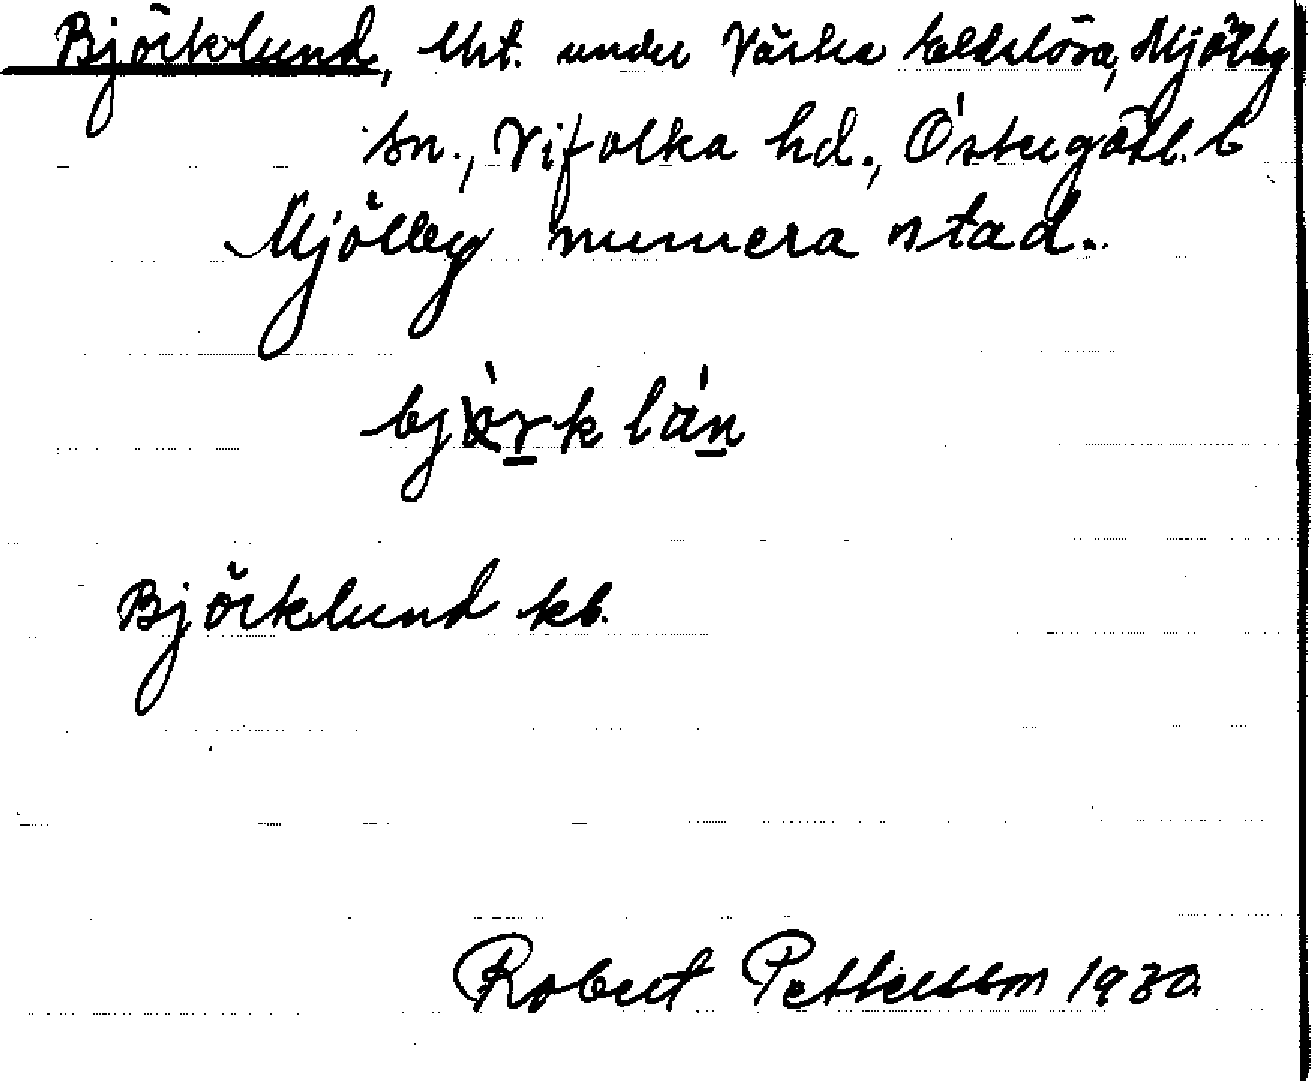 Björklund, lht. under Västra Eldslösa, Mjölby
sn., Vifolka hd., Östergötl. l.
Mjölby numera stad.
björklán
Björklund kb.
Robert Pettersson 1930.